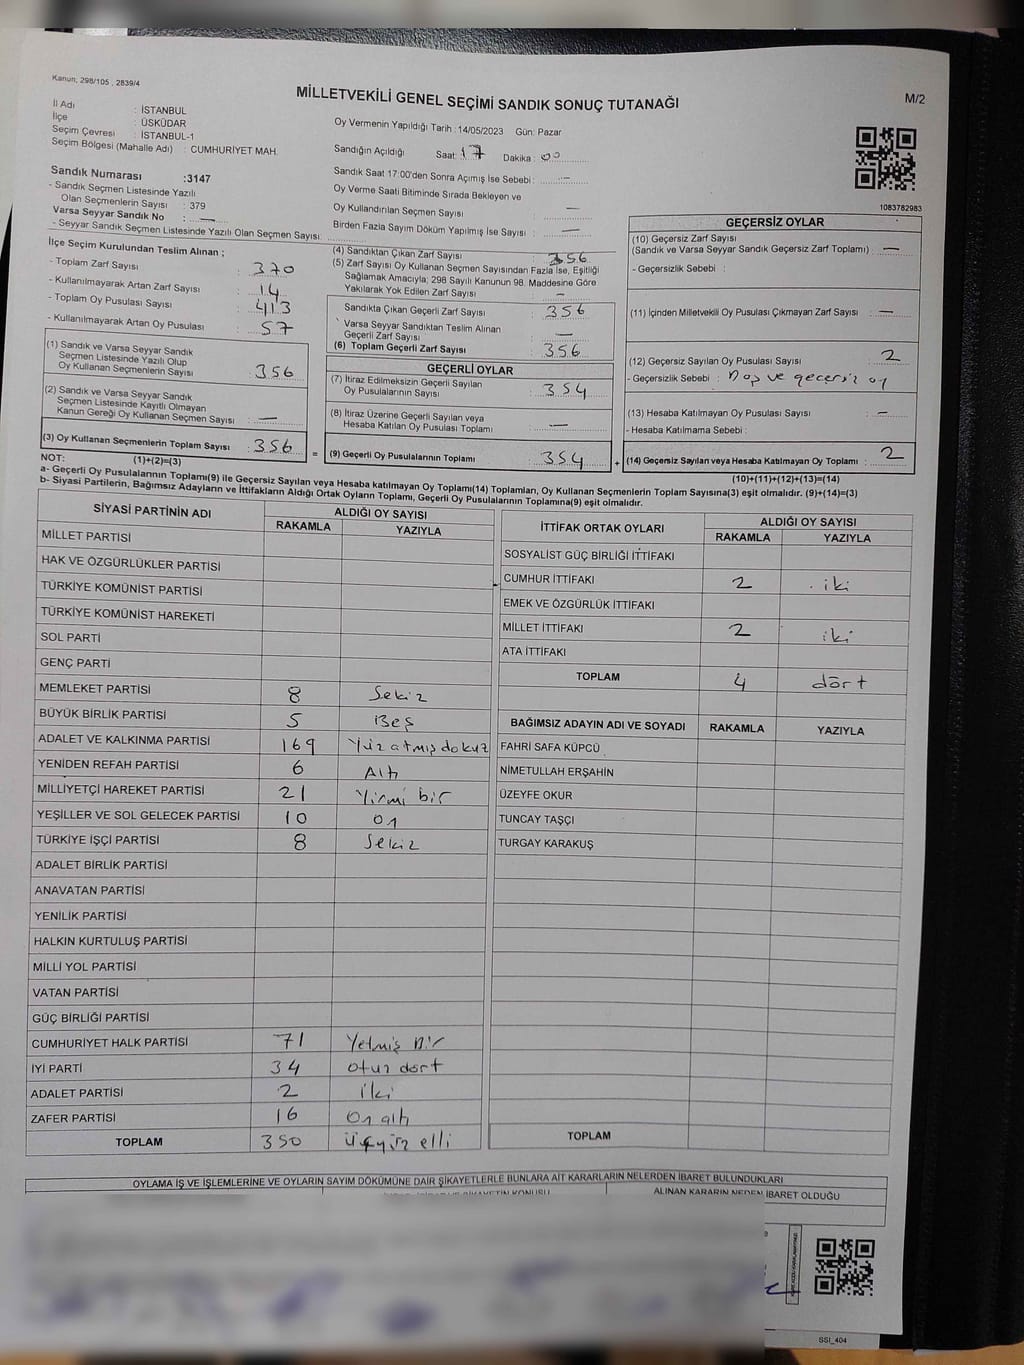 Kanun, 298/105 , 2839/4
MİLLETVEKİLİ GENEL SEÇİMİ SANDIK SONUÇ TUTANAĞI
M/2
İl Adı : İSTANBUL
İlçe : ÜSKÜDAR
Seçim Çevresi : İSTANBUL-1
Seçim Bölgesi (Mahalle Adı) : CUMHURİYET MAH.
Sandık Numarası :3147
- Sandık Seçmen Listesinde Yazılı
Olan Seçmenlerin Sayısı : 379
Varsa Seyyar Sandık No : —
- Seyyar Sandık Seçmen Listesinde Yazılı Olan Seçmen Sayısı:
Oy Vermenin Yapıldığı Tarih : 14/05/2023 Gün: Pazar
Sandığın Açıldığı Saat: 17 Dakika : 00
Sandık Saat 17:00'den Sonra Açılmış İse Sebebi : —
Oy Verme Saati Bitiminde Sırada Bekleyen ve
Oy Kullandırılan Seçmen Sayısı : —
Birden Fazla Sayım Döküm Yapılmış İse Sayısı : —
1083782983
İlçe Seçim Kurulundan Teslim Alınan ;
- Toplam Zarf Sayısı : 370
- Kullanılmayarak Artan Zarf Sayısı : 14
- Toplam Oy Pusulası Sayısı : 413
- Kullanılmayarak Artan Oy Pusulası : 57
(1) Sandık ve Varsa Seyyar Sandık
Seçmen Listesinde Yazılı Olup
Oy Kullanan Seçmenlerin Sayısı : 356
(2) Sandık ve Varsa Seyyar Sandık
Seçmen Listesinde Kayıtlı Olmayan
Kanun Gereği Oy Kullanan Seçmen Sayısı : —
(3) Oy Kullanan Seçmenlerin Toplam Sayısı : 356
(1)+(2)=(3)
(4) Sandıktan Çıkan Zarf Sayısı : 356
(5) Zarf Sayısı Oy Kullanan Seçmen Sayısından Fazla İse, Eşitliği
Sağlamak Amacıyla; 298 Sayılı Kanunun 98. Maddesine Göre
Yakılarak Yok Edilen Zarf Sayısı : —
Sandıkta Çıkan Geçerli Zarf Sayısı : 356
Varsa Seyyar Sandıktan Teslim Alınan
Geçerli Zarf Sayısı : —
(6) Toplam Geçerli Zarf Sayısı : 356
GEÇERLİ OYLAR
(7) İtiraz Edilmeksizin Geçerli Sayılan
Oy Pusulalarının Sayısı : 354
(8) İtiraz Üzerine Geçerli Sayılan veya
Hesaba Katılan Oy Pusulası Toplamı : —
= (9) Geçerli Oy Pusulalarının Toplamı : 354
GEÇERSİZ OYLAR
(10) Geçersiz Zarf Sayısı
(Sandık ve Varsa Seyyar Sandık Geçersiz Zarf Toplamı) : —
- Geçersizlik Sebebi :
(11) İçinden Milletvekili Oy Pusulası Çıkmayan Zarf Sayısı : —
(12) Geçersiz Sayılan Oy Pusulası Sayısı : 2
- Geçersizlik Sebebi : Boş ve geçersiz oy
(13) Hesaba Katılmayan Oy Pusulası Sayısı : —
- Hesaba Katılmama Sebebi :
+ (14) Geçersiz Sayılan veya Hesaba Katılmayan Oy Toplamı : 2
(10)+(11)+(12)+(13)=(14)
NOT:
a- Geçerli Oy Pusulaları Toplamı(9) ile Geçersiz Sayılan veya Hesaba katılmayan Oy Toplamı(14) Toplamları, Oy Kullanan Seçmenlerin Toplam Sayısına(3) eşit olmalıdır. (9)+(14)=(3)
b- Siyasi Partilerin, Bağımsız Adayların ve İttifakların Aldığı Ortak Oyların Toplamı, Geçerli Oy Pusulalarının Toplamına(9) eşit olmalıdır.
SİYASİ PARTİNİN ADI ALDIĞI OY SAYISI
RAKAMLA YAZIYLA
MİLLET PARTİSİ
HAK VE ÖZGÜRLÜKLER PARTİSİ
TÜRKİYE KOMÜNİST PARTİSİ
TÜRKİYE KOMÜNİST HAREKETİ
SOL PARTİ
GENÇ PARTİ
MEMLEKET PARTİSİ 8 Sekiz
BÜYÜK BİRLİK PARTİSİ 5 Beş
ADALET VE KALKINMA PARTİSİ 169 Yüz atmış dokuz
YENİDEN REFAH PARTİSİ 6 Altı
MİLLİYETÇİ HAREKET PARTİSİ 21 Yirmi bir
YEŞİLLER VE SOL GELECEK PARTİSİ 10 On
TÜRKİYE İŞÇİ PARTİSİ 8 Sekiz
ADALET BİRLİK PARTİSİ
ANAVATAN PARTİSİ
YENİLİK PARTİSİ
HALKIN KURTULUŞ PARTİSİ
MİLLİ YOL PARTİSİ
VATAN PARTİSİ
GÜÇ BİRLİĞİ PARTİSİ
CUMHURİYET HALK PARTİSİ 71 Yetmiş Bir
İYİ PARTİ 34 otuz dört
ADALET PARTİSİ 2 İki
ZAFER PARTİSİ 16 On altı
TOPLAM 350 üçyüz elli
İTTİFAK ORTAK OYLARI ALDIĞI OY SAYISI
RAKAMLA YAZIYLA
SOSYALİST GÜÇ BİRLİĞİ İTTİFAKI
CUMHUR İTTİFAKI 2 iki
EMEK VE ÖZGÜRLÜK İTTİFAKI
MİLLET İTTİFAKI 2 iki
ATA İTTİFAKI
TOPLAM 4 dört
BAĞIMSIZ ADAYIN ADI VE SOYADI RAKAMLA YAZIYLA
FAHRİ SAFA KÜPCÜ
NİMETULLAH ERŞAHİN
ÜZEYFE OKUR
TUNCAY TAŞÇI
TURGAY KARAKUŞ
TOPLAM
OYLAMA İŞ VE İŞLEMLERİNE VE OYLARIN SAYIM DÖKÜMÜNE DAİR ŞİKAYETLERLE BUNLARA AİT KARARLARIN NELERDEN İBARET BULUNDUKLARI
ALINAN KARARIN NEDEN İBARET OLDUĞU
SSI_404